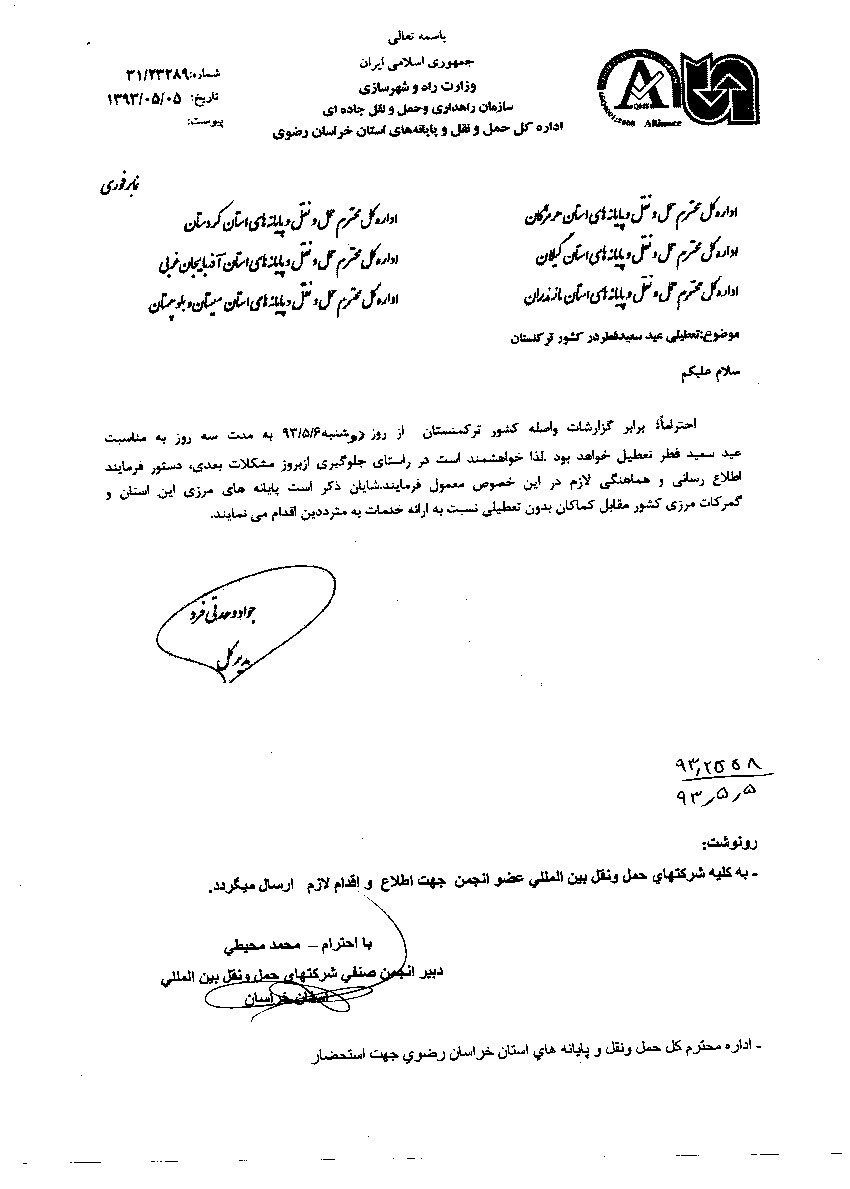 باسمه تعالی
جمهوری اسلامی ایران
وزارت راه و شهرسازی
سازمان راهداری وحمل و نقل جاده ای
اداره کل حمل و نقل و پایانه‌های استان خراسان رضوی
شماره:۳۱/۲۳۲۸۹
تاریخ: ۱۳۹۳/۰۵/۰۵
پیوست:
Alliance
نمابر فوری
اداره کل محترم حمل و نقل و پایانه های استان هرمزگان
اداره کل محترم حمل و نقل و پایانه های استان کردستان
اداره کل محترم حمل و نقل و پایانه های استان گیلان
اداره کل محترم حمل و نقل و پایانه های استان آذربایجان غربی
اداره کل محترم حمل و نقل و پایانه های استان مازندران
اداره کل محترم حمل و نقل و پایانه های استان سیستان و بلوچستان
موضوع:تعطیلی عید سعیدفطردر کشور ترکنستان
سلام علیکم
احتراماً؛ برابر گزارشات واصله کشور ترکمنستان از روز دوشنبه۹۳/۵/۶ به مدت سه روز به مناسبت
عید سعید فطر تعطیل خواهد بود .لذا خواهشمند است در راستای جلوگیری ازبروز مشکلات بعدی، دستور فرمایند
اطلاع رسانی و هماهنگی لازم در این خصوص معمول فرمایند.شایان ذکر است پایانه های مرزی این استان و
گمرکات مرزی کشور مقابل کماکان بدون تعطیلی نسبت به ارائه خدمات به مترددین اقدام می نمایند.
جواد وحدتی فرد
مدیر کل
۹۳٫۲۵۵۸
۹۳٫۵٫۵
رونوشت:
- به کلیه شرکتهاي حمل ونقل بین المللي عضو انجمن جهت اطلاع و اقدام لازم ارسال میگردد.
با احترام – محمد محیطي
دبیر انجمن صنفي شرکتهاي حمل ونقل بین المللي
استان خراسان
- اداره محترم کل حمل ونقل و پایانه هاي استان خراسان رضوي جهت استحضار